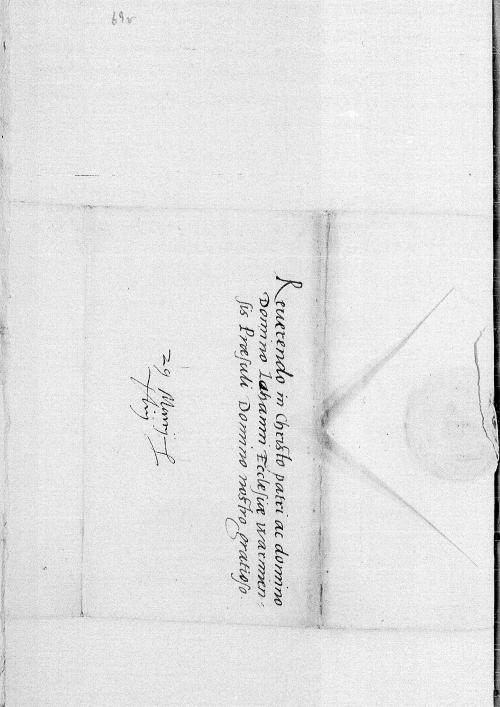 69v
Reuerendo in Christo patri ac domino
Domino Iohanni Ecclesiæ warmien:
sis Præsuli Domino nostro gratioso.
29